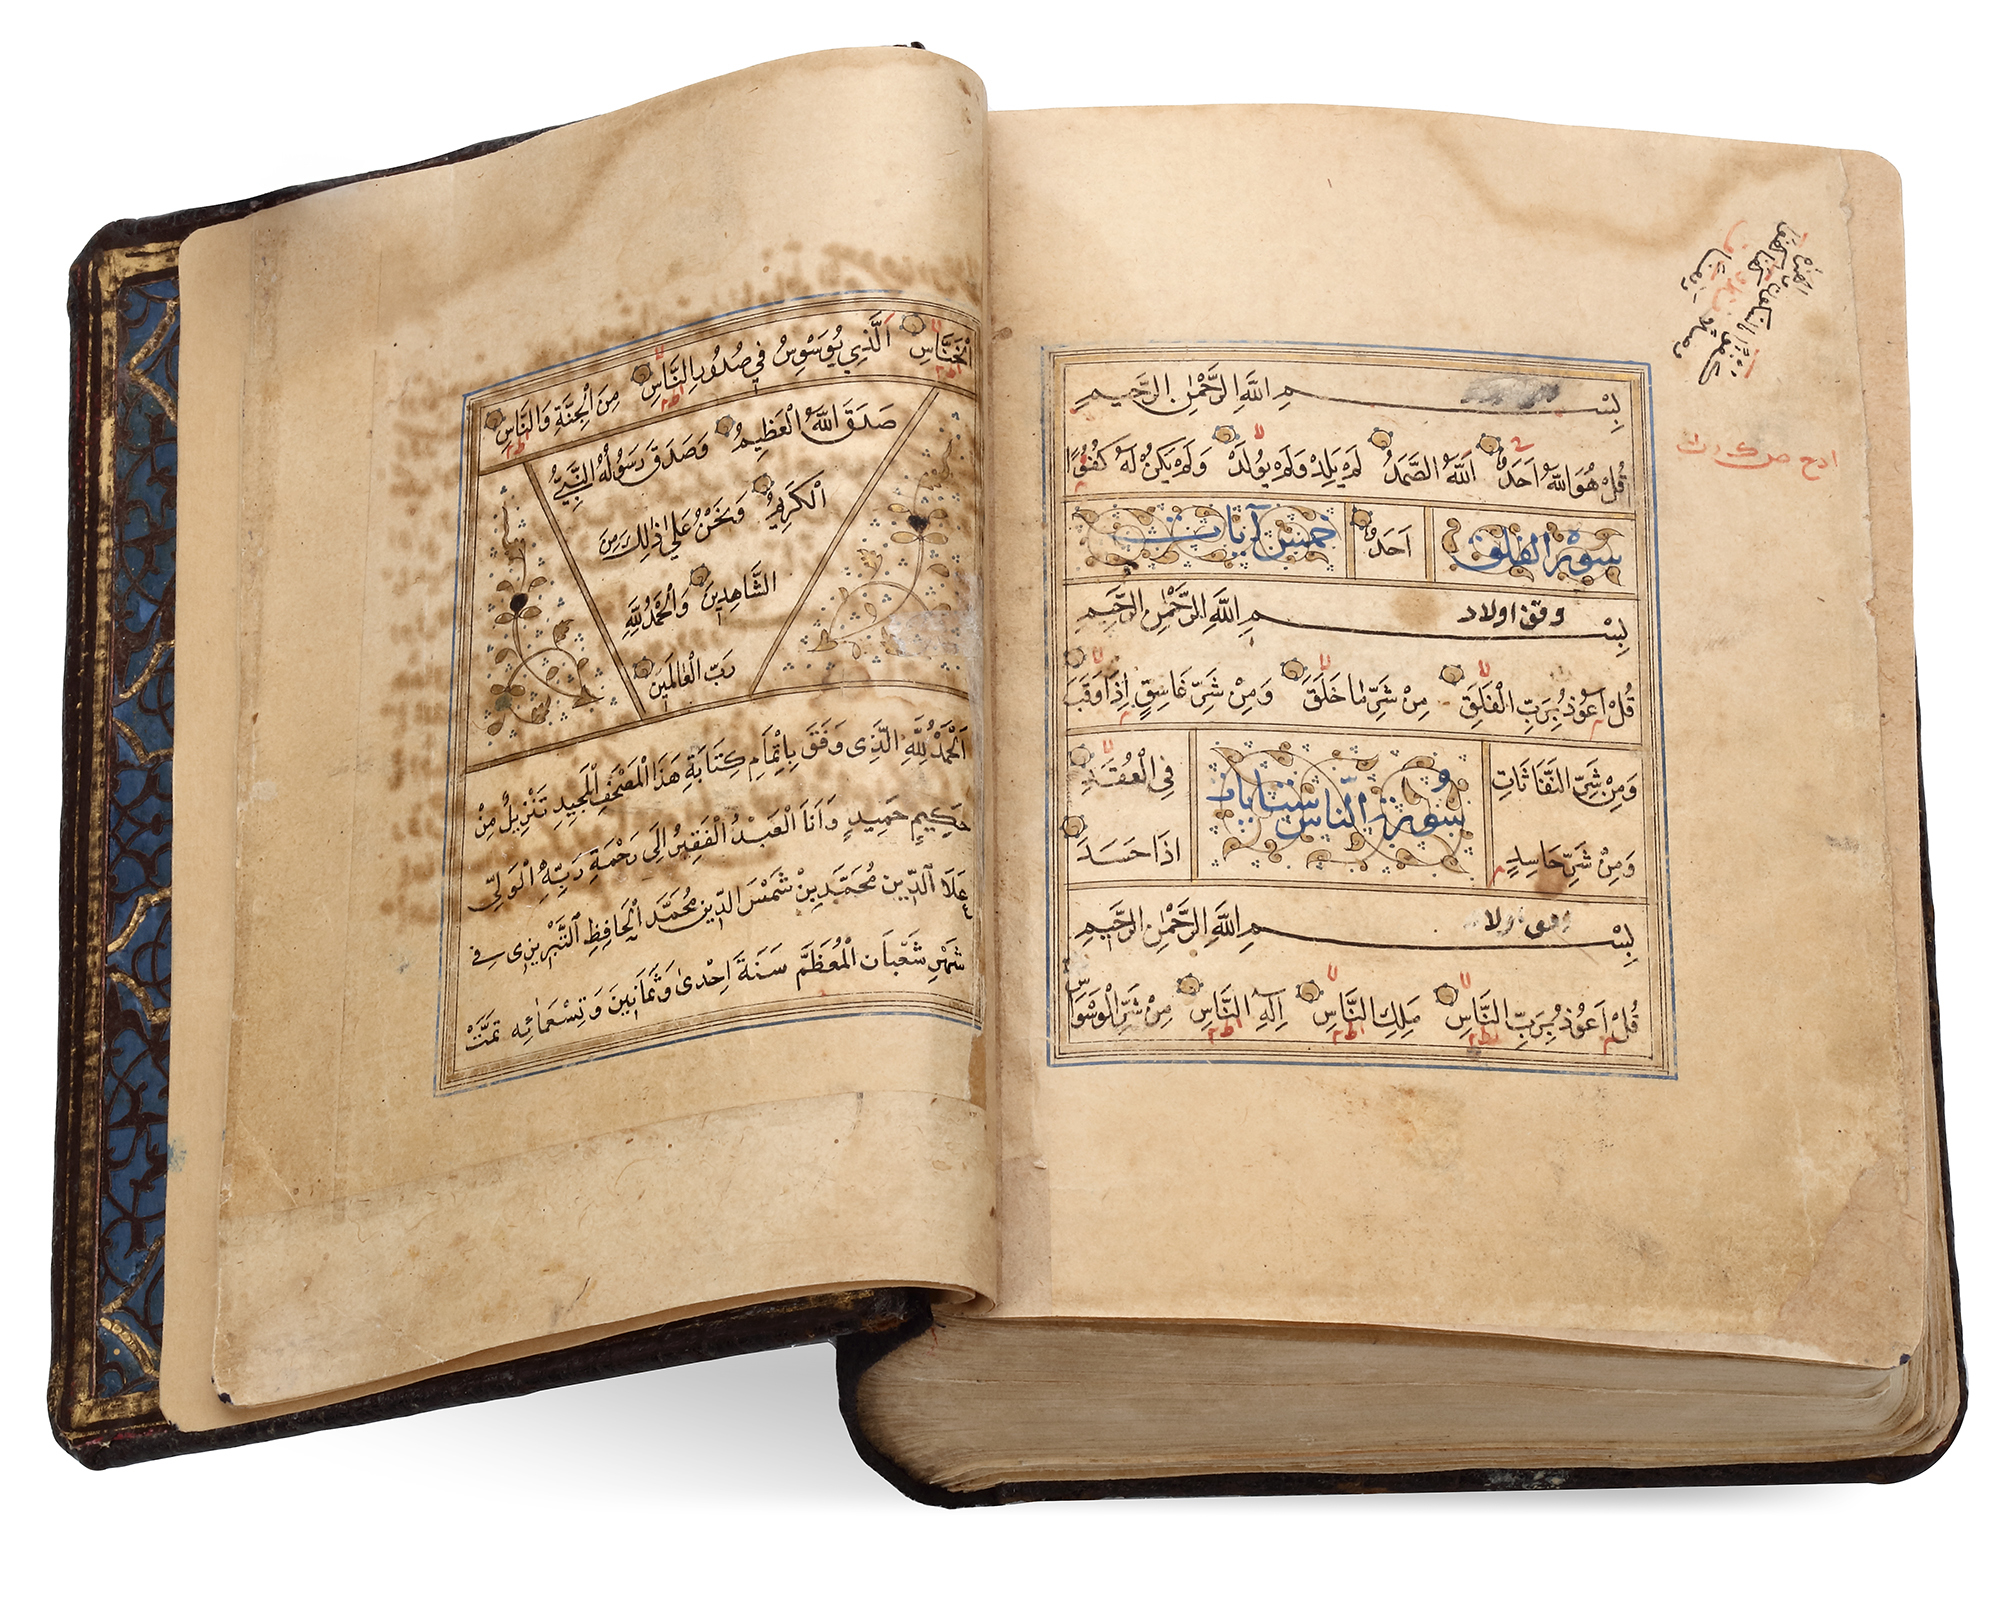 بِسْمِ اللَّهِ الرَّحْمٰنِ الرَّحِيمِ
قُلْ هُوَ اللَّهُ اَحَدٌ اَللَّهُ الصَّمَدُ لَمْ يَلِدْ وَلَمْ يُولَدْ وَلَمْ يَكُنْ لَهُ كُفُوًا
سورة الفلق اَحَدٌ خمس آيات
وقف اولاد
بِسْمِ اللَّهِ الرَّحْمٰنِ الرَّحِيمِ
قُلْ اَعُوذُ بِرَبِّ الْفَلَقِ مِنْ شَرِّ مَا خَلَقَ وَمِنْ شَرِّ غَاسِقٍ اِذَا وَقَبَ
وَمِنْ شَرِّ النَّفَّاثَاتِ فِي الْعُقَدِ
سورة الناس ست ايات
وَمِنْ شَرِّ حَاسِدٍ اِذَا حَسَدَ
وقف اولاد
بِسْمِ اللَّهِ الرَّحْمٰنِ الرَّحِيمِ
قُلْ اَعُوذُ بِرَبِّ النَّاسِ مَلِكِ النَّاسِ اِلٰهِ النَّاسِ مِنْ شَرِّ الْوَسْوَاسِ
الْخَنَّاسِ اَلَّذِي يُوَسْوِسُ فِي صُدُورِ النَّاسِ مِنَ الْجِنَّةِ وَالنَّاسِ
صَدَقَ اللَّهُ الْعَظِيمُ وَصَدَقَ رَسُولُهُ النَّبِيُّ
الْكَرِيمُ وَنَحْنُ عَلَى ذٰلِكَ مِنَ
الشَّاهِدِينَ وَالْحَمْدُ لِلَّهِ
رَبِّ الْعَالَمِينَ
اَلْحَمْدُ لِلَّهِ الَّذِى وَفَّقَ بِاِتْمَامِ كِتَابَةِ هَذَا الْمُصْحَفِ الْمَجِيدِ تَنْزِيلٌ مِنْ
حَكِيمٍ حَمِيدٍ وَاَنَا الْعَبْدُ الْفَقِيرُ اِلَى رَحْمَةِ رَبِّهِ الْوَلِيِّ
عَلَا الدِّين مُحَمَّد بِنْ شَمْس الدِّين مُحَمَّد الْحَافِظ التَّبْرِيزِى فِى
شَهْرِ شَعْبَان الْمُعَظَّم سَنَةَ اِحْدٰى وَثَمَانِينَ وَتِسْعَمِائِه تَمَّتْ